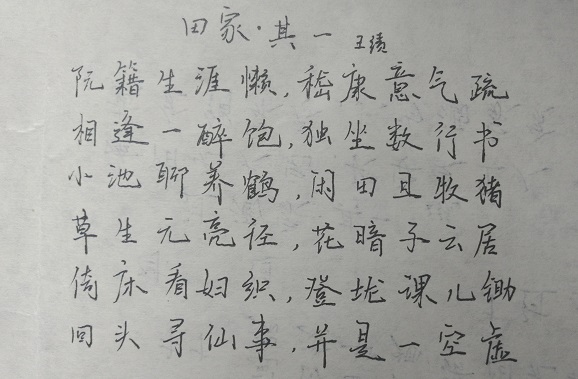 田家·其一 王绩
阮籍生涯懒,嵇康意气疏
相逢一醉饱,独坐数行书
小池聊养鹤,闲田且牧猪
草生元亮径,花暗子云居
倚床看妇织,登垅课儿锄
回头寻仙事,并是一空虚